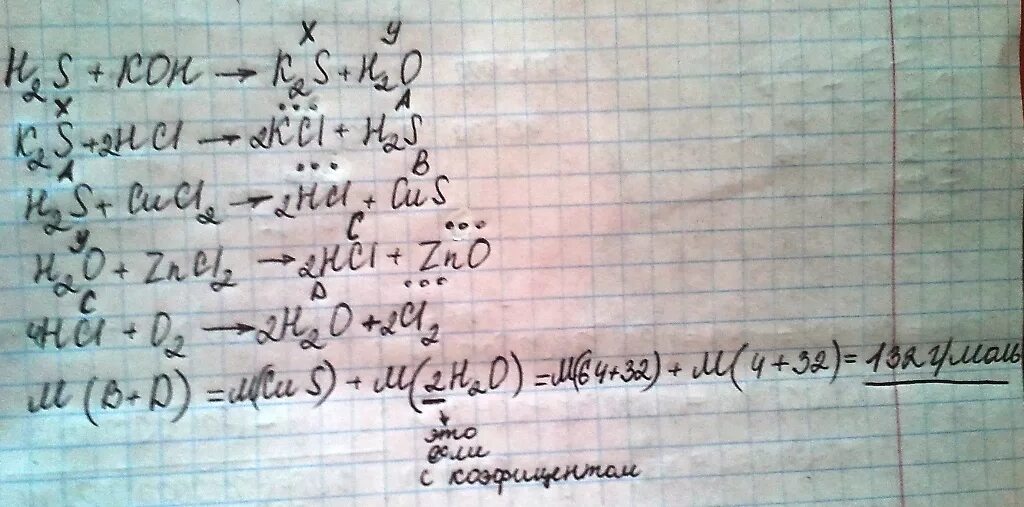 X У
H₂S + KOH → K₂S + H₂O
X ... A
K₂S + 2HCl → 2KCl + H₂S
A ... B
H₂S + CuCl₂ → 2HCl + CuS
У C ...
H₂O + ZnCl₂ → 2HCl + ZnO
C D ...
4HCl + O₂ → 2H₂O + 2Cl₂
M (B + D) = M(CuS) + M(2H₂O) = M(64+32) + M(4+32) = 132 г/моль
это
если
с коэфицентом